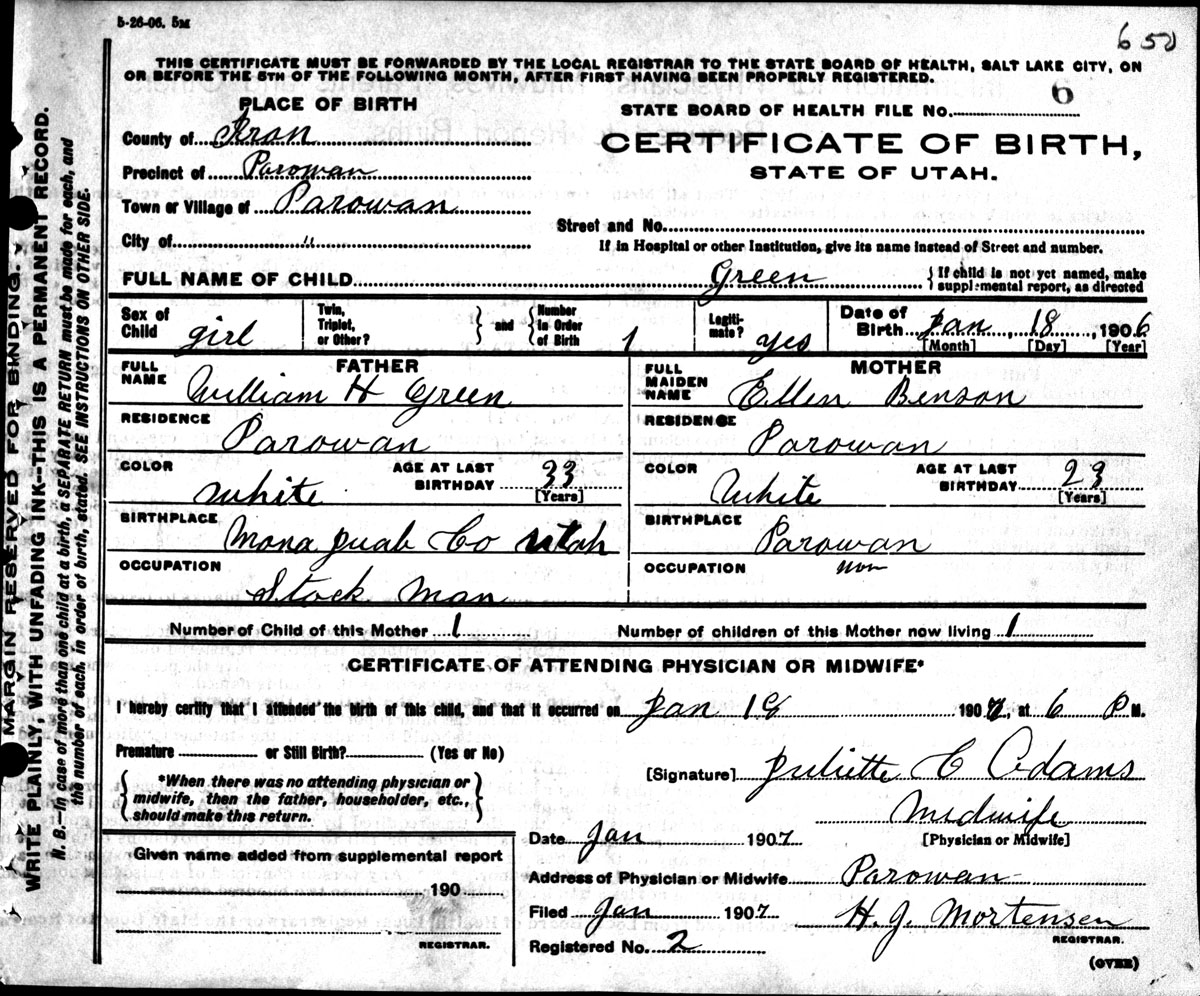 5-26-06. 5M
650
THIS CERTIFICATE MUST BE FORWARDED BY THE LOCAL REGISTRAR TO THE STATE BOARD OF HEALTH, SALT LAKE CITY, ON
OR BEFORE THE 5TH OF THE FOLLOWING MONTH, AFTER FIRST HAVING BEEN PROPERLY REGISTERED.
PLACE OF BIRTH
STATE BOARD OF HEALTH FILE No. 6
County of Iron
CERTIFICATE OF BIRTH,
Precinct of Parowan
STATE OF UTAH.
Town or Village of Parowan
Street and No.
City of "
If in Hospital or other Institution, give its name instead of Street and number.
FULL NAME OF CHILD Green { If child is not yet named, make
supplemental report, as directed
Sex of Child girl Twin, Triplet, or Other? } and { Number in Order of Birth 1 Legiti-mate? yes Date of Birth Jan 18, 1906
[Month] [Day] [Year]
FATHER MOTHER
FULL NAME William H Green FULL MAIDEN NAME Ellen Benson
RESIDENCE Parowan RESIDENCE Parowan
COLOR White AGE AT LAST BIRTHDAY 33 [Years] COLOR White AGE AT LAST BIRTHDAY 23 [Years]
BIRTHPLACE Mona Juab Co Utah BIRTHPLACE Parowan
OCCUPATION Stock Man OCCUPATION non
Number of Child of this Mother 1 Number of children of this Mother now living 1
CERTIFICATE OF ATTENDING PHYSICIAN OR MIDWIFE*
I hereby certify that I attended the birth of this child, and that it occurred on Jan 18 1907, at 6 P M.
Premature or Still Birth? (Yes or No)
[Signature] Juliette C Adams
{ *When there was no attending physician or
midwife, then the father, householder, etc.,
should make this return. }
Midwife
[Physician or Midwife]
Date Jan 1907
Given name added from supplemental report
190
REGISTRAR.
Address of Physician or Midwife Parowan
Filed Jan 1907 H. J. Mortensen
REGISTRAR.
Registered No. 2
(OVER)
MARGIN RESERVED FOR BINDING.
WRITE PLAINLY, WITH UNFADING INK--THIS IS A PERMANENT RECORD.
N. B.--In case of more than one child at a birth, a SEPARATE RETURN must be made for each, and
the number of each, in order of birth, stated. SEE INSTRUCTIONS ON OTHER SIDE.